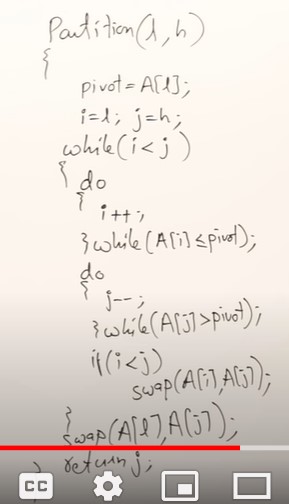 Partition(l,h)
{
pivot=A[l];
i=l; j=h;
while(i<j)
{ do
{
i++;
}while(A[i]≤pivot);
do
{
j--;
}while(A[j]>pivot);
if(i<j)
swap(A[i],A[j]);
}
swap(A[l],A[j]);
} return j;
CC